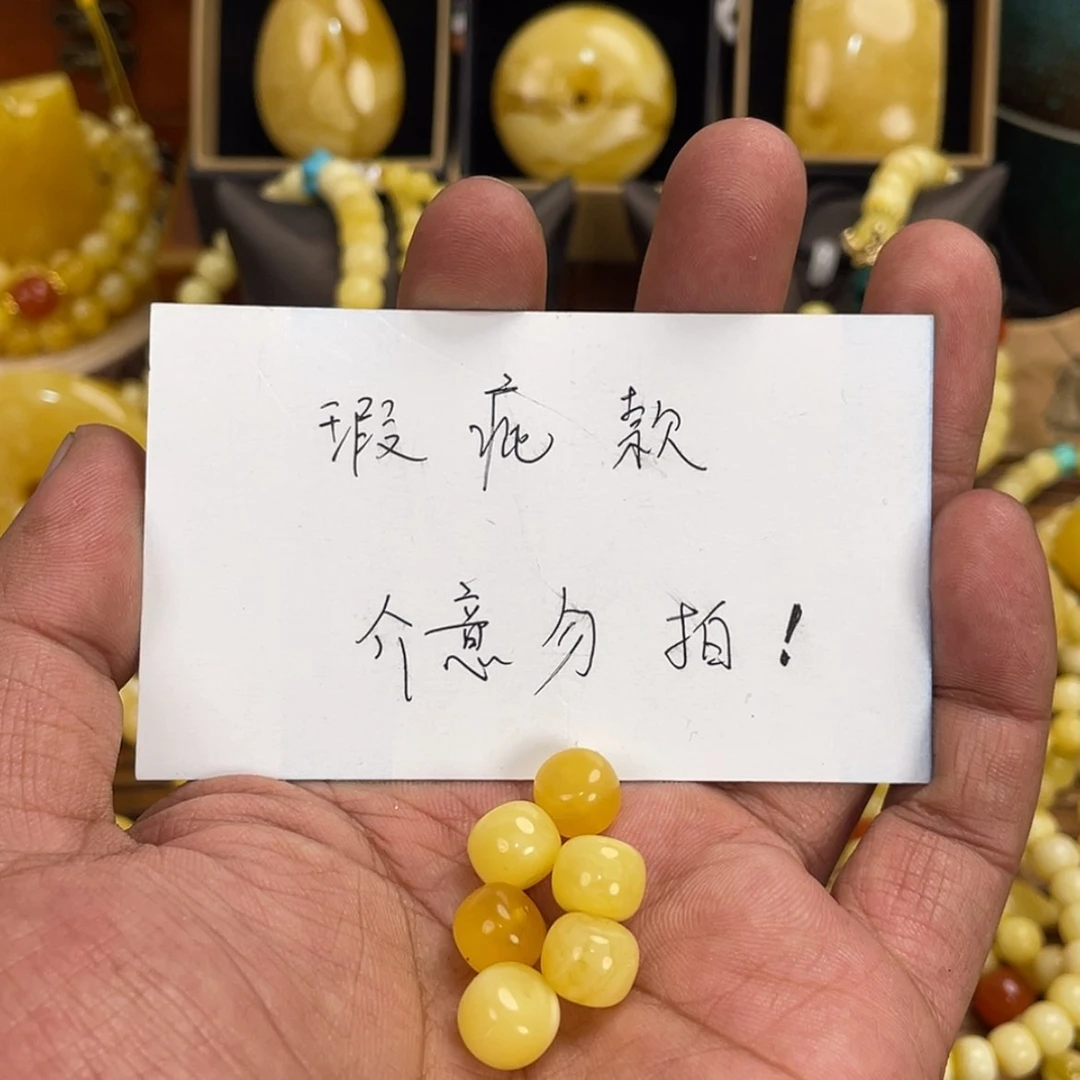 瑕疵款
介意勿拍！